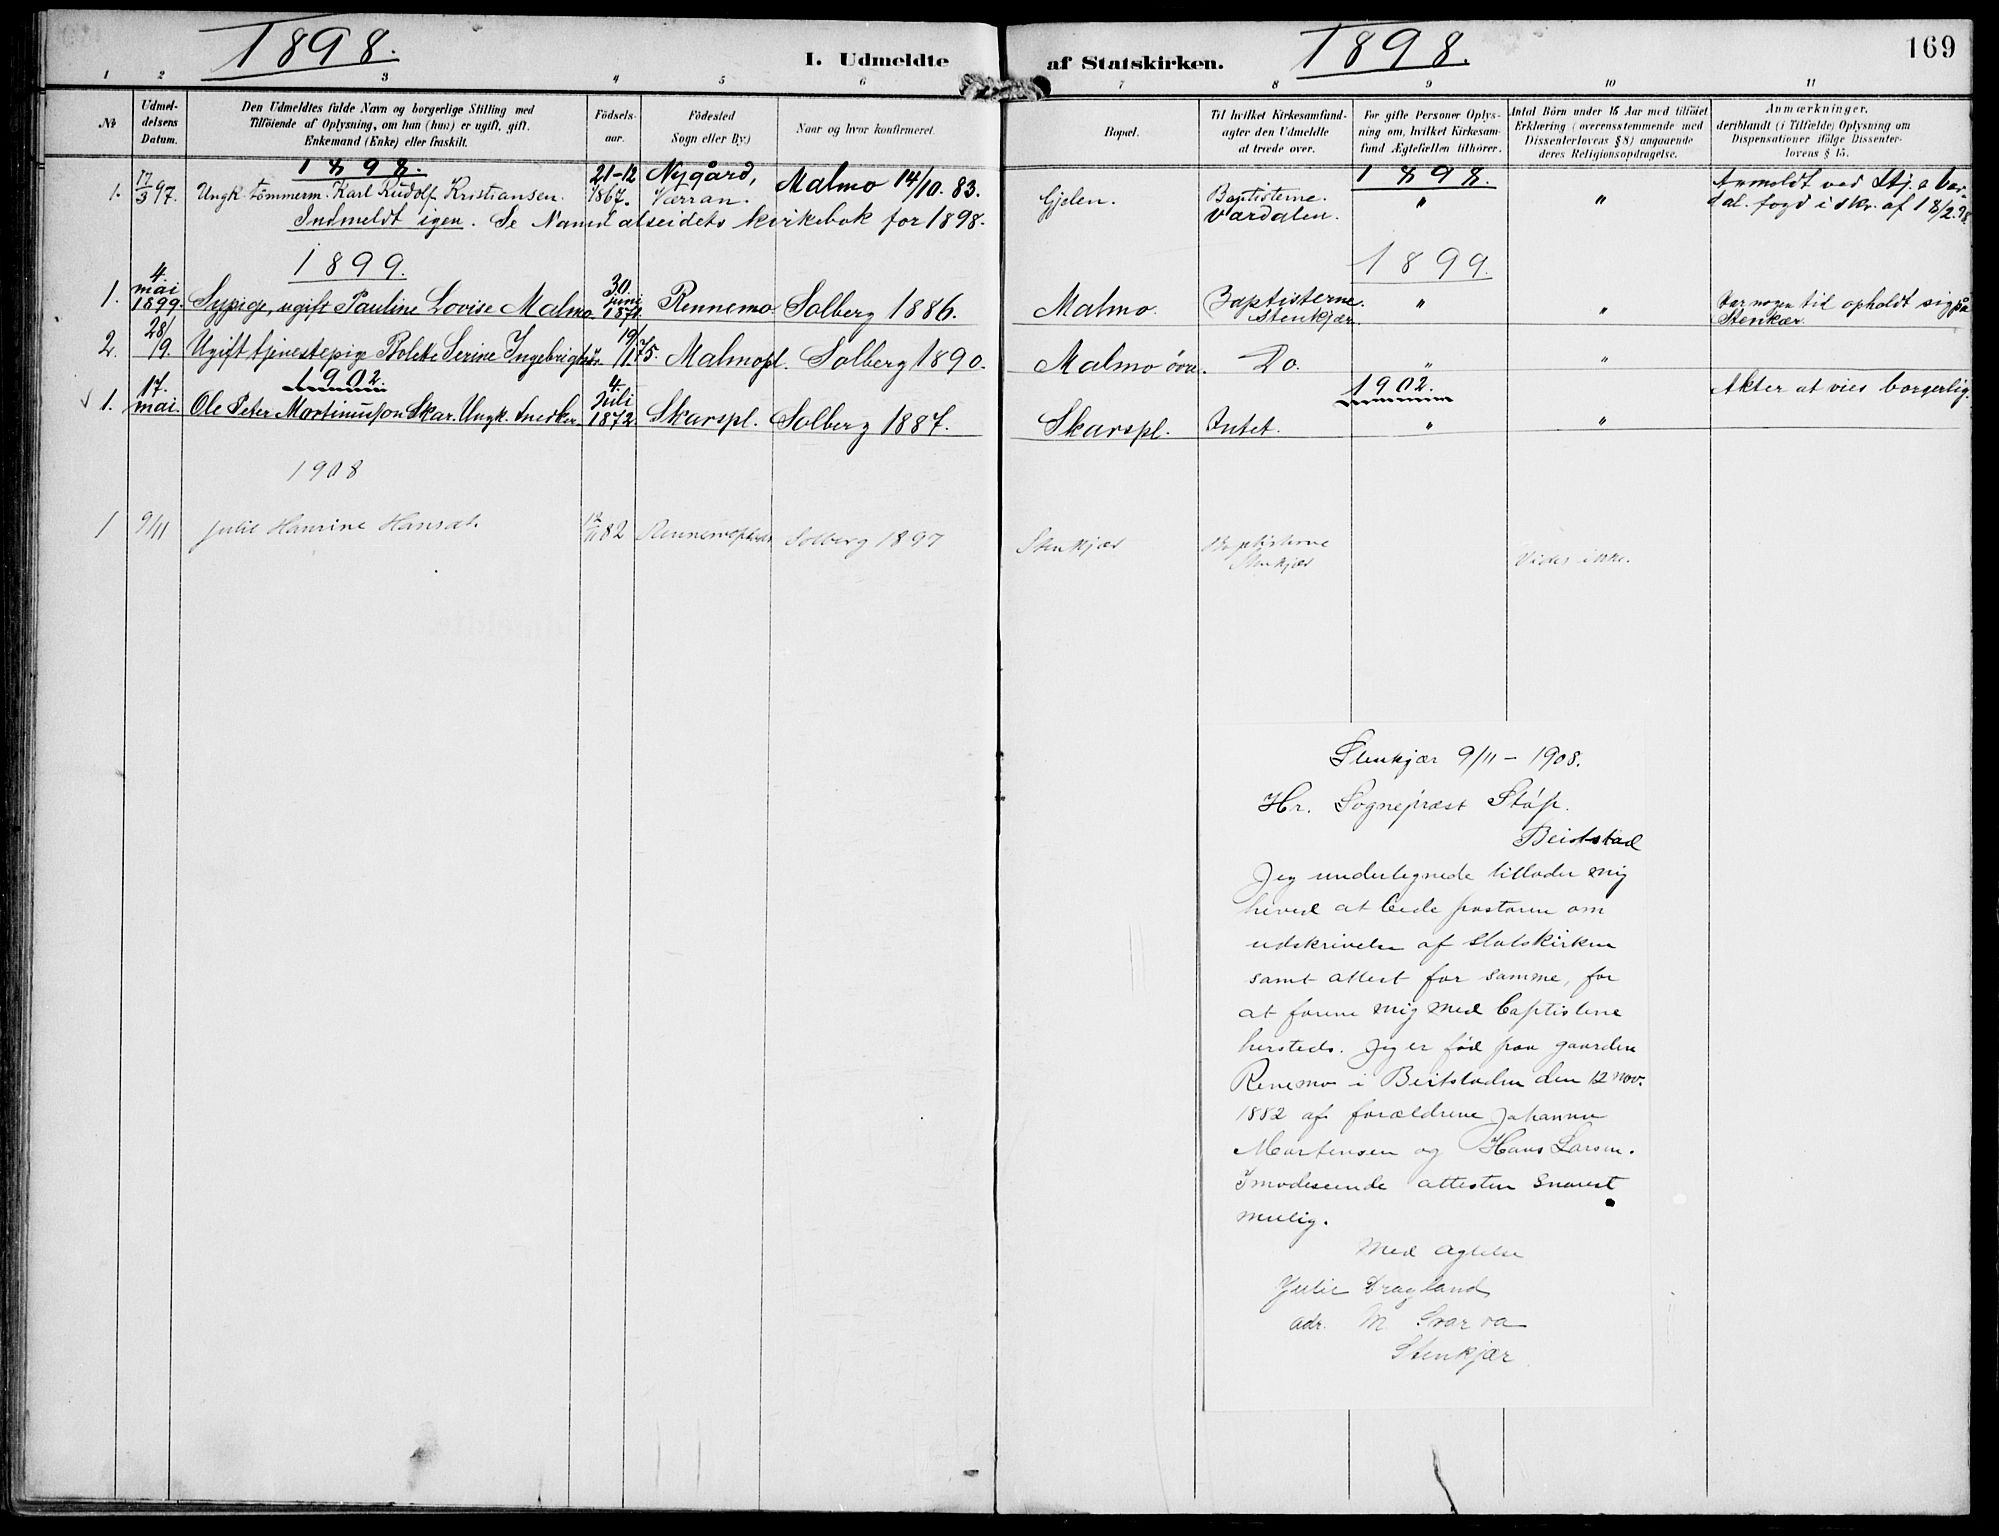 1898.
I. Udmeldte
af Statskirken.
1898.
169
1 2 3 4 5 6 7 8 9 10 11
No
Udmel-
delsens
Datum.
Den Udmeldtes fulde Navn og borgerlige Stilling med
Tilföiende af Oplysning, om han (hun) er ugift, gift,
Enkemand (Enke) eller fraskilt.
Födsels-
aar.
Födested
Sogn eller By:)
Naar og hvor konfirmeret.
Bopæl.
Til hvilket Kirkesamfund-
agter den Udmeldte
at træde over.
For gifte Personer Oplys-
ning om, hvilket Kirkesam-
fund Ægtefællen tilhörer.
Antal Börn under 15 Aar med tilföiet
Erklæring (overensstemmende med
Dissenterlovens § 8) angaaende
deres Religionsopdragelse.
Anmærkninger.
deriblandt (i Tilfælde) Oplysning om
Dispensationer ifölge Dissenter-
lovens § 15.
1898.
1898.
1. 17/3 97. Ungk. tömmerm. Karl Rudolf Kristiansen. 21-12 1867. Nygård, Værran. Malmo 14/10. 83. Gjelen. Baptisterne. Værdalen. " "
Anmeldt ved Stj. & Vær-
dal. fogd i skr. af 18/2.98
Indmeldt igen. Se Namdalseidets kirkebok for 1898.
1899.
1899.
1. 4. mai 1899. Sypige, ugift Pauline Lovise Malmo. 30. juni 1871. Rennemo. Solberg 1886. Malmo. Baptisterne. Stenkjær. " "
Har nogen tid opholdt sig på
Stenkær.
2. 28/9. Ugift tjenestepige Bolette Serine Ingebrigtsdtr. 19/11 75. Malmopl. Solberg 1890. Malmo övre. Do. " "
1902.
1902.
1. 17. mai. Ole Peter Mortinusson Skar. Ungk. Snedker. 4. Juli 1872. Skarspl. Solberg 1887. Skarspl. Intet. " " Akter at vies borgerlig.
1908
1 9/11 Julie Hansine Hansdt. 12/11 82 Rennemoplads Solberg 1897 Stenkjær Baptisterne Stenkjær Vides ikke.
Stenkjær 9/11 - 1908.
Hr. Sognepræst Støp.
Beitstad
Jeg undertegnede tillader mig
herved at bede pastoren om
udskrivelse af statskirken
samt attest for samme, for
at forene mig med baptistene
hersteds. Jeg er fød paa gaarden
Renemo i Beitstaden den 12 nov.
1882 af forældrene Johanna
Mortensen og Hans Larsen.
Imødeseende attesten snarest
mulig.
Med agtelse
Julie Dragland
adr. M. Svarva
Stenkjær